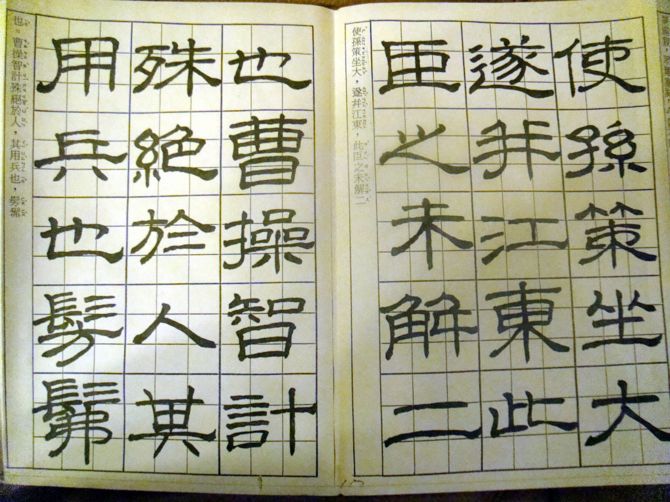 使孫策坐大
遂并江東此
臣之未解二
使孫策坐大，遂并江東，此臣之未解二
也曹操智計
殊絕於人其
用兵也髣髴
也。曹操智計殊絕於人，其用兵也，髣髴